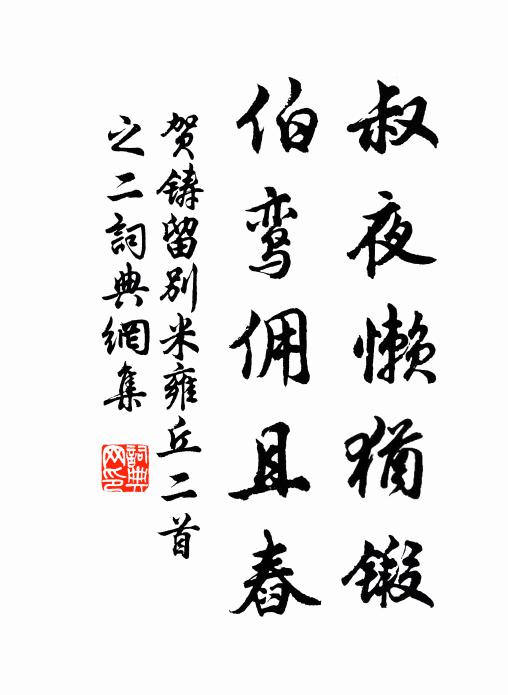 叔夜懒猶锻
伯鸾佣且舂
贺铸留别米雍丘二首
之二詞典網集
詞典网印